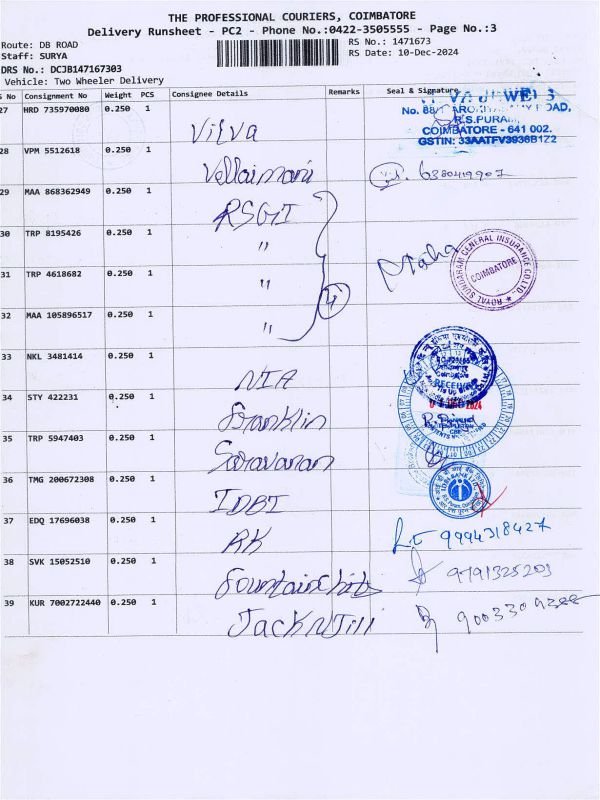 THE PROFESSIONAL COURIERS, COIMBATORE
Delivery Runsheet - PC2 - Phone No.:0422-3505555 - Page No.:3
Route: DB ROAD RS No.: 1471673
Staff: SURYA RS Date: 10-Dec-2024
DRS No.: DCJB147167303
Vehicle: Two Wheeler Delivery
S No Consignment No Weight PCS Consignee Details Remarks Seal & Signature
27 HRD 735970080 0.250 1 Vilva
JEWELS
ROAD,
R.S.PURAM,
COIMBATORE - 641 002.
GSTIN: 33AATFV3936B1Z2
28 VPM 5512618 0.250 1 Vellaimani 6380419907
29 MAA 868362949 0.250 1 RSGI
30 TRP 8195426 0.250 1 "
31 TRP 4618682 0.250 1 "
32 MAA 105896517 0.250 1 "
4
Maha
ROYAL SUNDARAM GENERAL INSURANCE CO LTD
COIMBATORE
33 NKL 3481414 0.250 1 NIA
RECEIVED
DEC 2024
34 STY 422231 0.250 1 Franklin
35 TRP 5947403 0.250 1 Saravanan
36 TMG 200672308 0.250 1 IDBI
37 EDQ 17696038 0.250 1 RK 9994318427
38 SVK 15052510 0.250 1 9791325203
39 KUR 7002722440 0.250 1 Jack N Jill